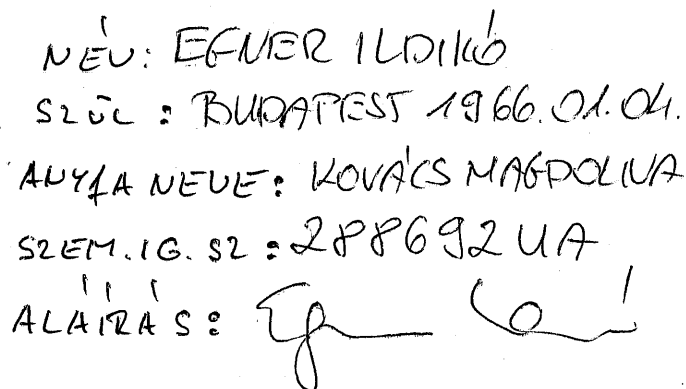 NÉV: EGNER ILDIKÓ
SZÜL: BUDAPEST 1966.01.04.
ANYJA NEVE: KOVÁCS MAGDOLNA
SZEM.IG.SZ: 288692UA
ALÁÍRÁS: